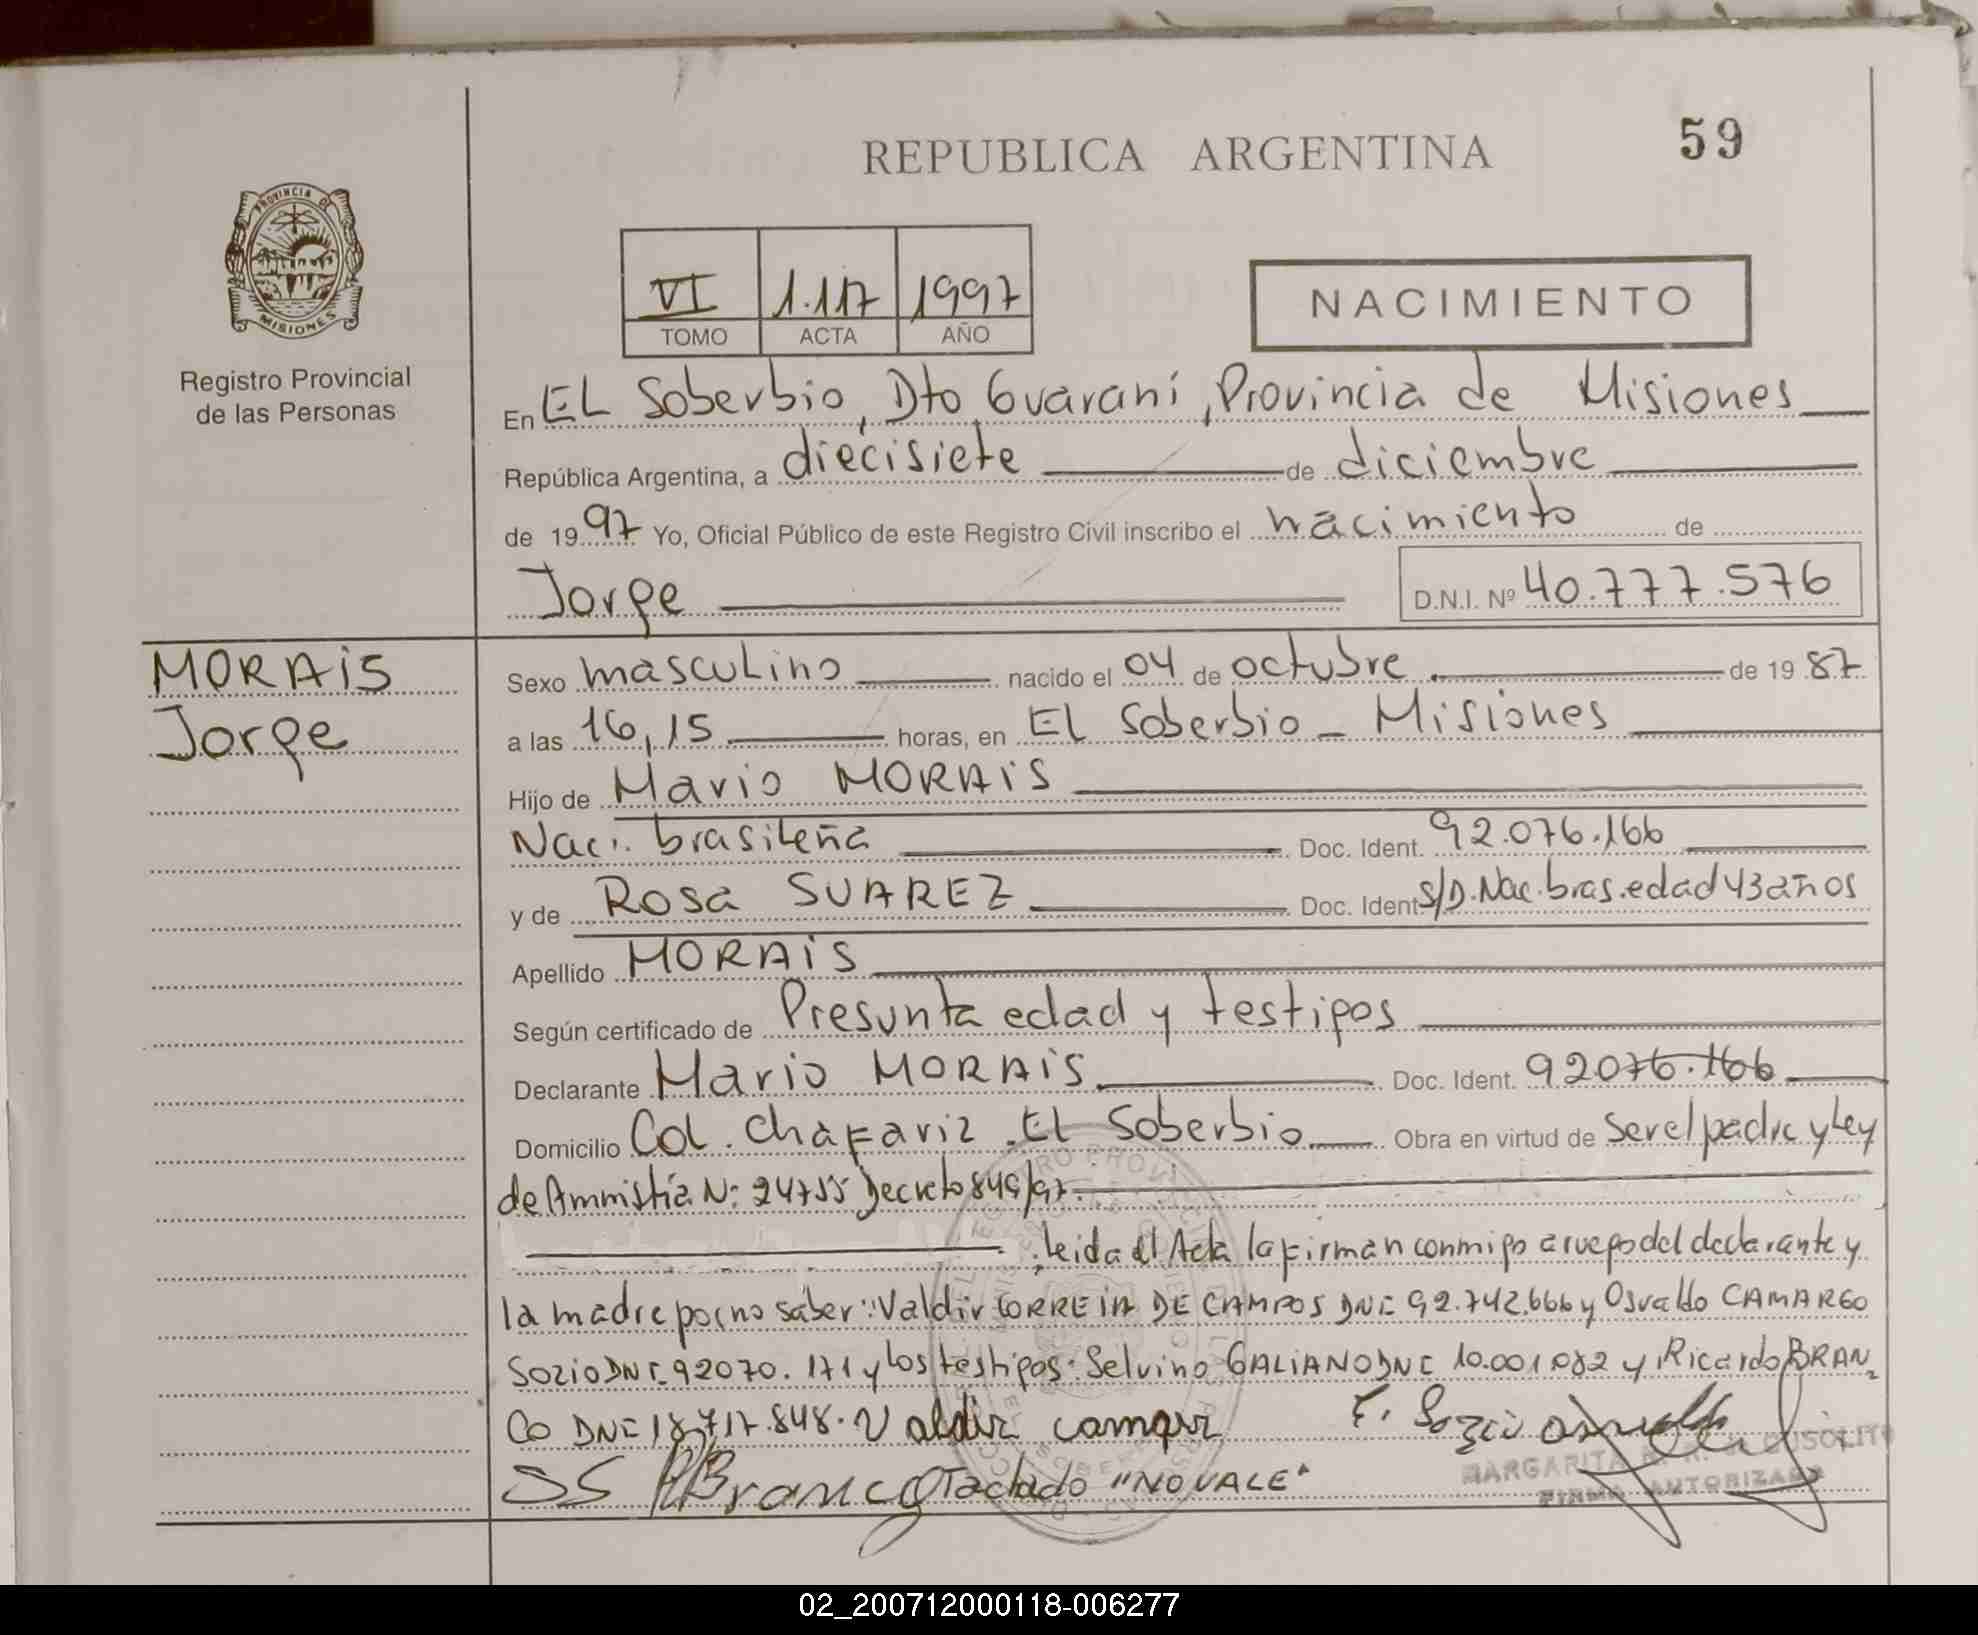 REPUBLICA ARGENTINA
59
PROVINCIA DE
MISIONES
Registro Provincial
de las Personas
VI 1.117 1997
TOMO ACTA AÑO
NACIMIENTO
En EL Soberbio, Dto Guaraní, Provincia de Misiones
República Argentina, a diecisiete de diciembre
de 1997 Yo, Oficial Público de este Registro Civil inscribo el nacimiento de
Jorge D.N.I. Nº 40.777.576
MORAiS
Jorge
Sexo mascuLino nacido el 04 de octubre de 1987
a las 16,15 horas, en EL Soberbio - Misiones
Hijo de Mario MORAiS
Naci. brasileña Doc. Ident. 92.076.166
y de Rosa SUAREZ Doc. Ident S/D. Nac. bras. edad 43 años
Apellido MORAiS
Según certificado de Presunta edad y testigos
Declarante Mario MORAiS Doc. Ident. 92076.166
Domicilio Col. Chafariz. El Soberbio Obra en virtud de ser el padre y Ley
de Amnistía N: 24755 Decreto 849/97.
leida el Acta la firman conmigo a ruego del declarante y
la madre por no saber: Valdir CORREIA DE CAMPOS DNI 92.742.666 y Osvaldo CAMARGO
SOZIO DNI 92070.171 y los testigos: Selvino GALIANO DNI 10.001.082 y Ricardo BRAN
CO DNI 18.717.848. Valdir campos
SS RBranco Tachado "NO VALE"
MARGARITA
FIRMA AUTORIZADA
02_200712000118-006277